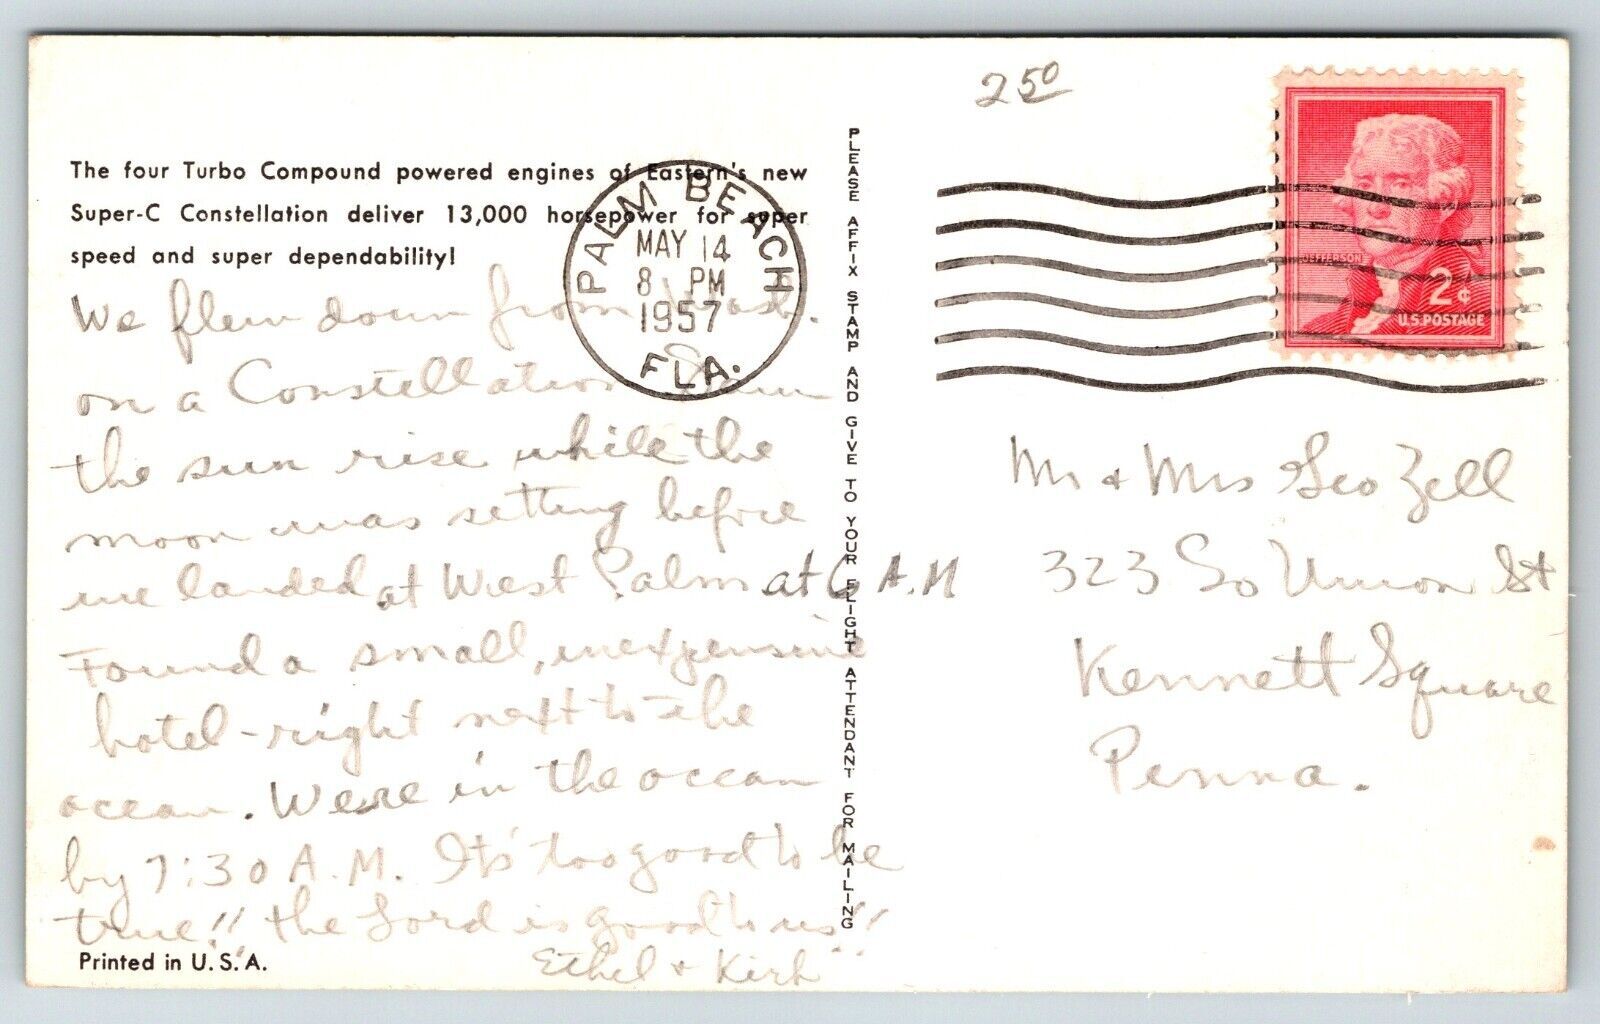 2 50
The four Turbo Compound powered engines of Eastern's new
Super-C Constellation deliver 13,000 horsepower for super
speed and super dependability!
PALM BEACH
MAY 14
8 PM
1957
FLA.
JEFFERSON
2¢
U.S. POSTAGE
PLEASE AFFIX STAMP AND GIVE TO YOUR FLIGHT ATTENDANT FOR MAILING
We flew down from Wash.
on a Constellation Saw
the sun rise while the
moon was setting before
we landed at West Palm at 6 A.M
Found a small, inexpensive
hotel-right next to the
ocean. Were in the ocean
by 7:30 A.M. Its' too good to be
true!! "the Lord is good to us"!!
Ethel + Kirk
Mr + Mrs Geo Zell
323 So Union St
Kennett Square
Penna.
Printed in U. S. A.